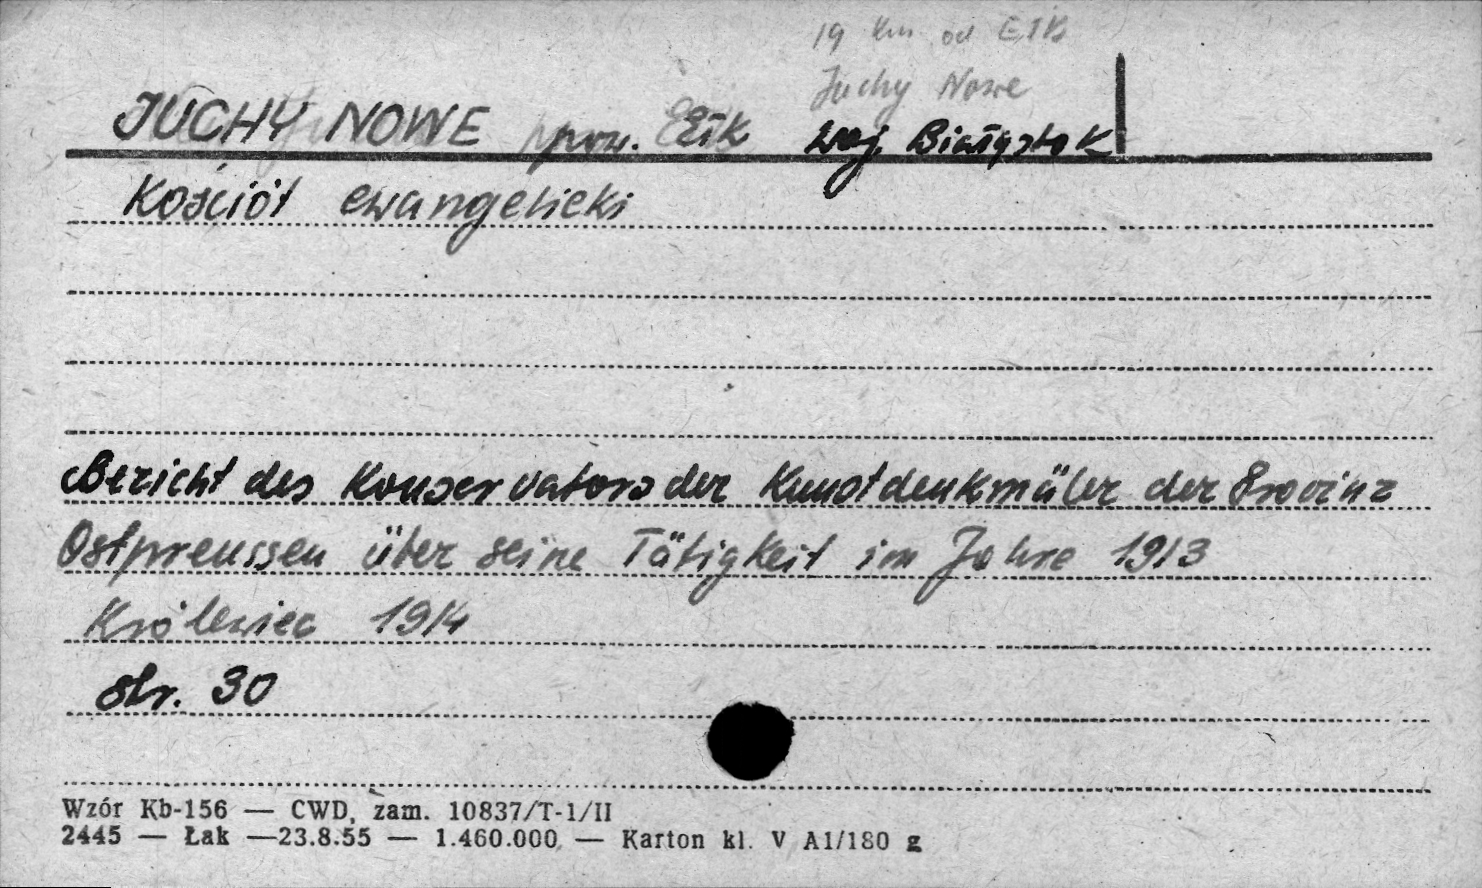 19 km od Ełk
Juchy Nowe
JUCHY NOWE pow. Ełk woj. Białystok
Kościół ewangelicki
Bericht des Konservators der Kunstdenkmäler der Provinz
Ostpreussen über seine Tätigkeit im Jahre 1913
Królewiec 1914
str. 30
Wzór Kb-156 — CWD, zam. 10837/T-1/II
2445 — Łak —23.8.55 — 1.460.000 — Karton kl. V A1/180 g